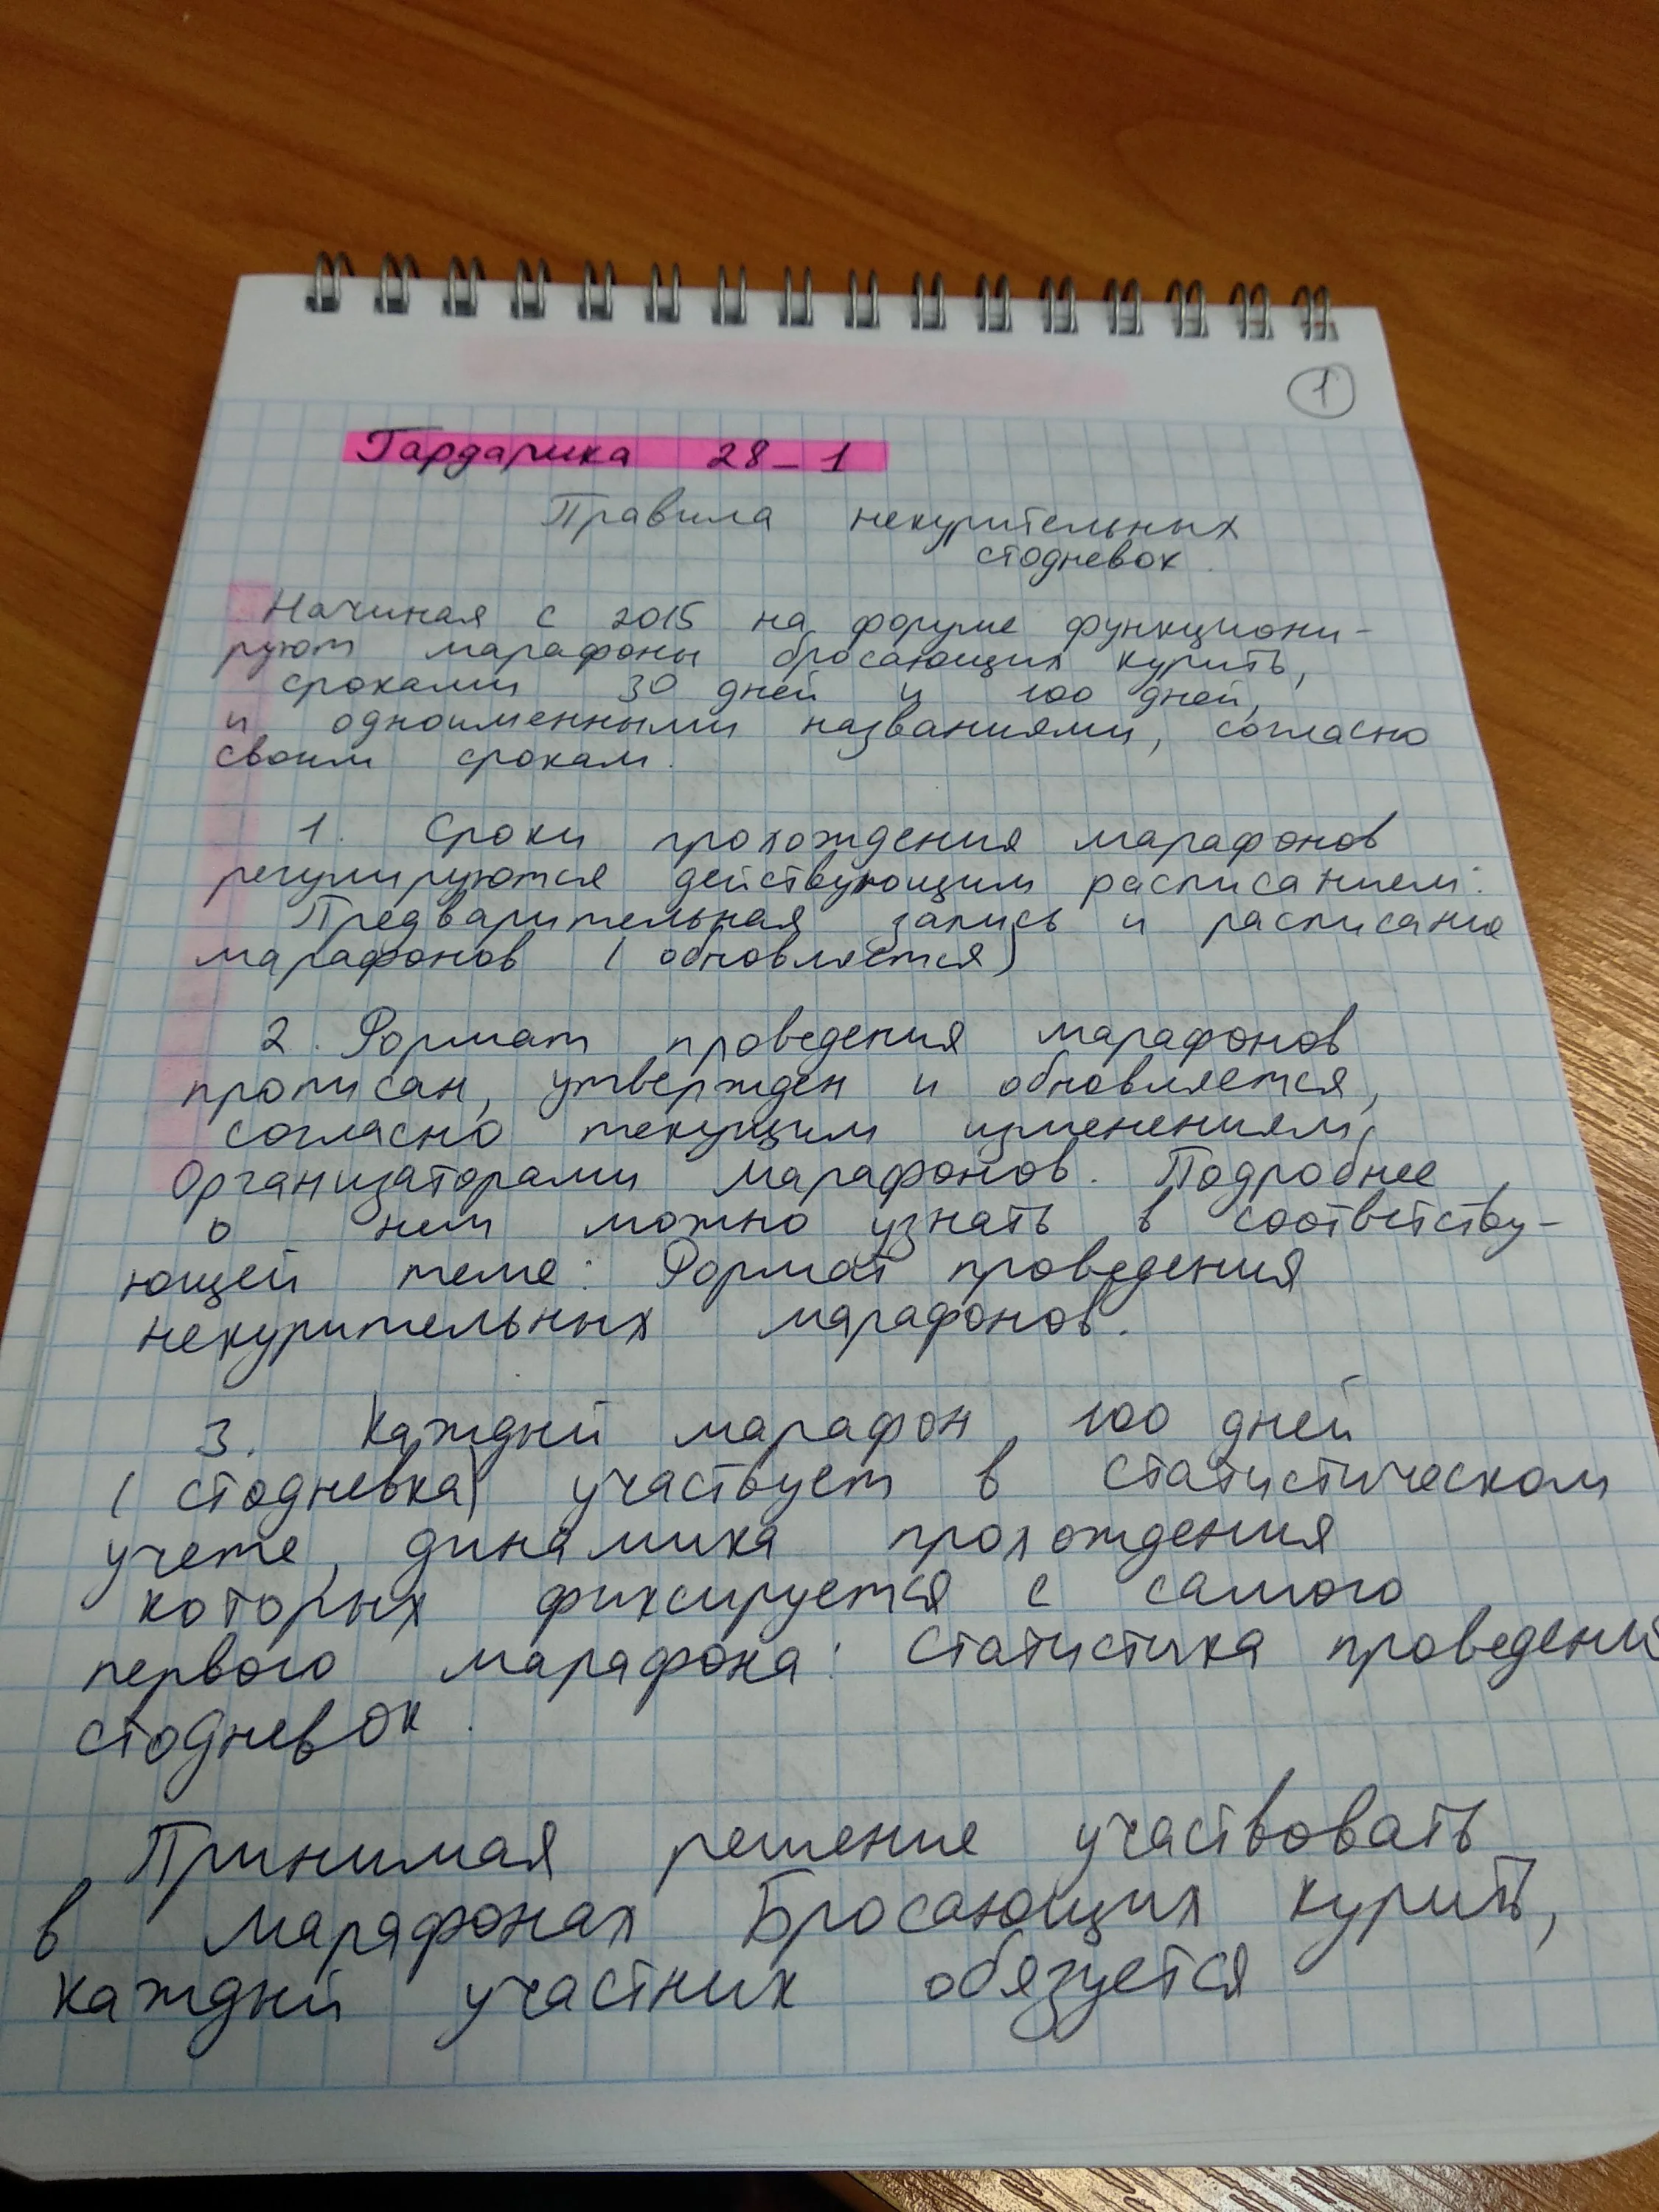 1
Гардарика 28-1
Правила некурительных
стодневок.
Начиная с 2015 на форуме функциони-
руют марафоны бросающих курить,
сроками 30 дней и 100 дней,
и одноименными названиями, согласно
своим срокам.
1. Сроки прохождения марафонов
регулируются действующим расписанием:
Предварительная запись и расписание
марафонов (обновляется)
2. Формат проведения марафонов
прописан, утвержден и обновляется,
согласно текущим изменениям,
Организаторами марафонов. Подробнее
о нем можно узнать в соответству-
ющей теме: Формат проведения
некурительных марафонов.
3. Каждый марафон, 100 дней
(стодневка) участвует в статистическом
учете, динамика прохождения
которых фиксируется с самого
первого марафона: Статистика проведения
стодневок.
Принимая решение участвовать
в марафонах Бросающих курить,
каждый участник обязуется